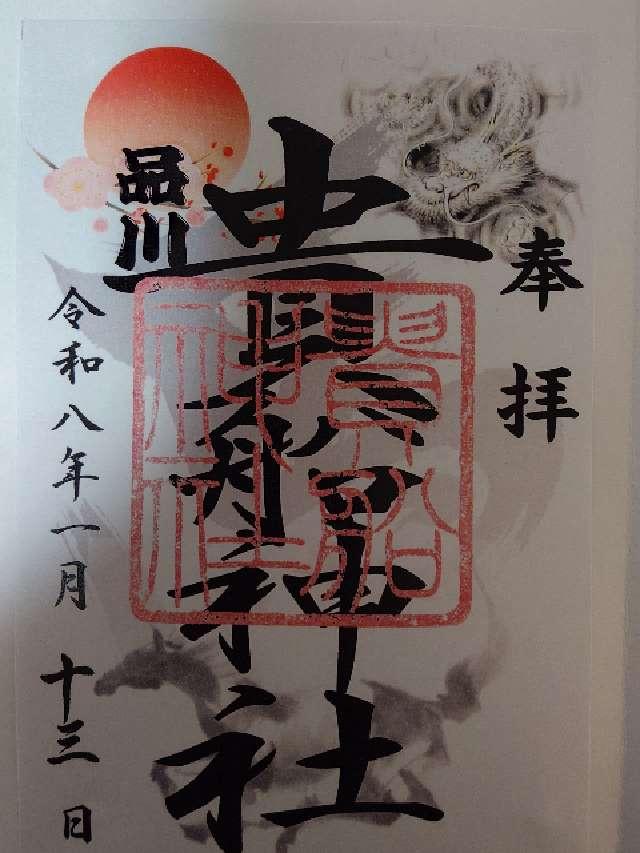 奉拝
品川
貴船神社
貴船
神社
令和八年一月十三日